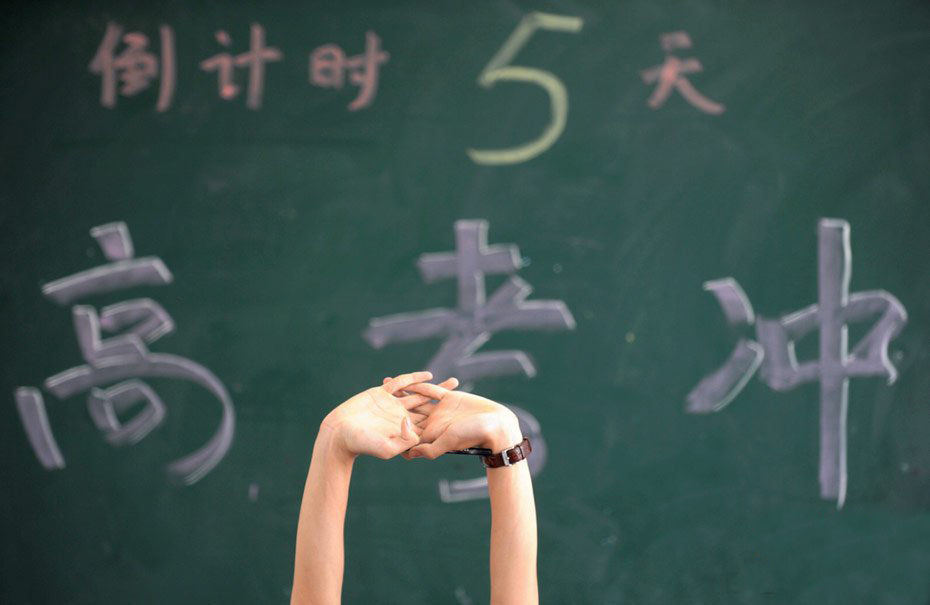 倒计时5天
高考冲